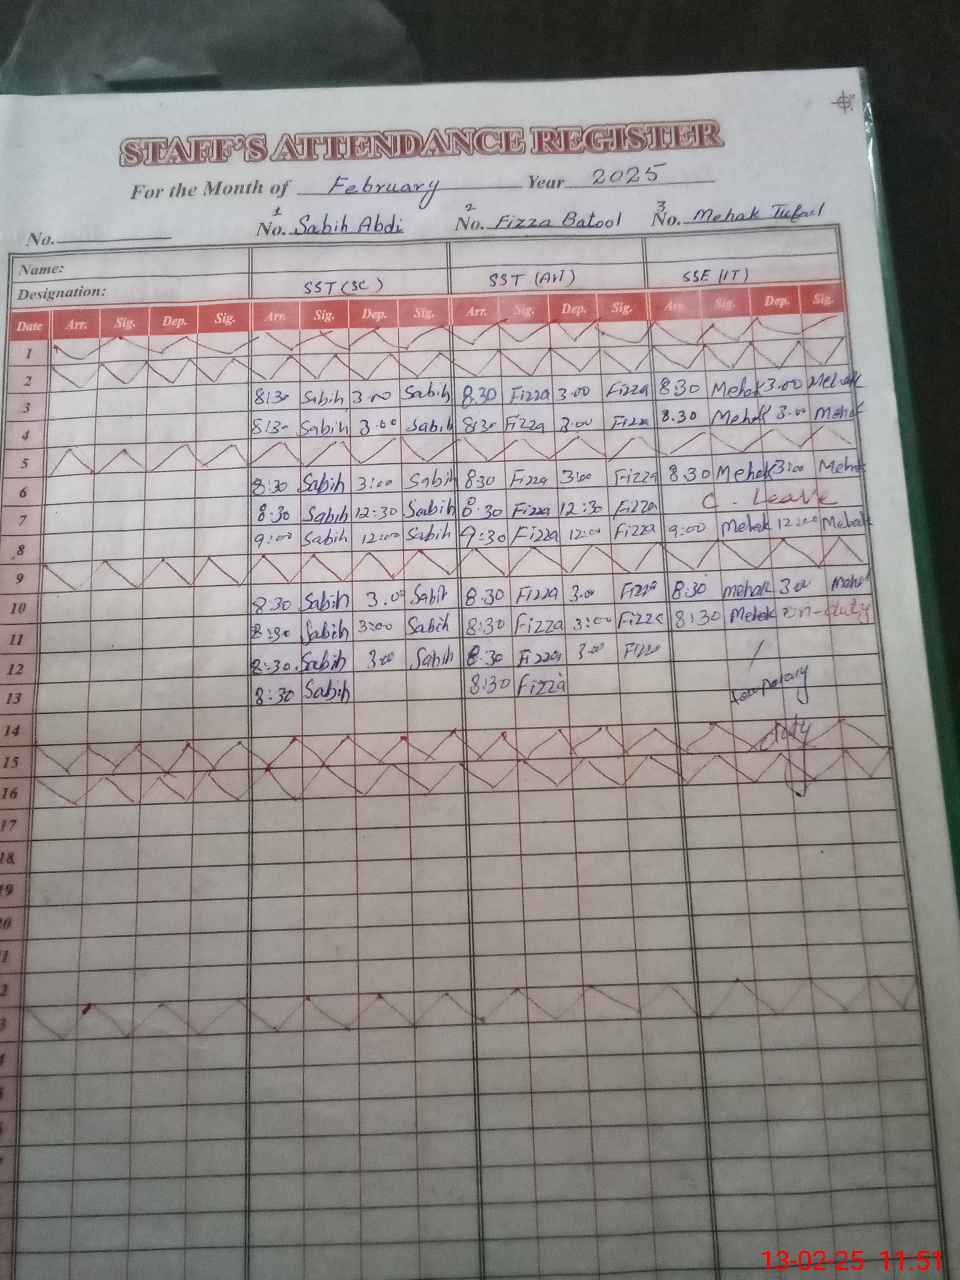 STAFF'S ATTENDANCE REGISTER
For the Month of February Year 2025
No. 1 No. Sabih Abdi 2 No. Fizza Batool 3 No. Mehak Tufail
Name:
Designation: SST (SC) SST (Art) SSE (IT)
Date Arr. Sig. Dep. Sig. Arr. Sig. Dep. Sig. Arr. Sig. Dep. Sig. Arr. Sig. Dep. Sig.
1
2
3 8:30 Sabih 3.00 Sabih 8.30 Fizza 3.00 Fizza 8:30 Mehak 3.00 Mehak
4 8:30 Sabih 3.00 Sabih 8:30 Fizza 3.00 Fizza 8.30 Mehak 3.00 Mehak
5
6 8:30 Sabih 3:00 Sabih 8:30 Fizza 3:00 Fizza 8.30 Mehak 3:00 Mehak
7 8:30 Sabih 12:30 Sabih 8:30 Fizza 12:30 Fizza C. Leave
8 9:00 Sabih 12:00 Sabih 9:30 Fizza 12:00 Fizza 9:00 Mehak 12:00 Mehak
9
10 8:30 Sabih 3.00 Sabih 8:30 Fizza 3.00 Fizza 8:30 mehak 3.00 Mehak
11 8:30 Sabih 3:00 Sabih 8:30 Fizza 3:00 Fizza 8:30 Mehak on-duty
12 8:30 Sabih 3.00 Sabih 8:30 Fizza 3.00 Fizza
13 8:30 Sabih 8:30 Fizza temporary
14 duty
15
16
17
18
19
13-02-25 11:51